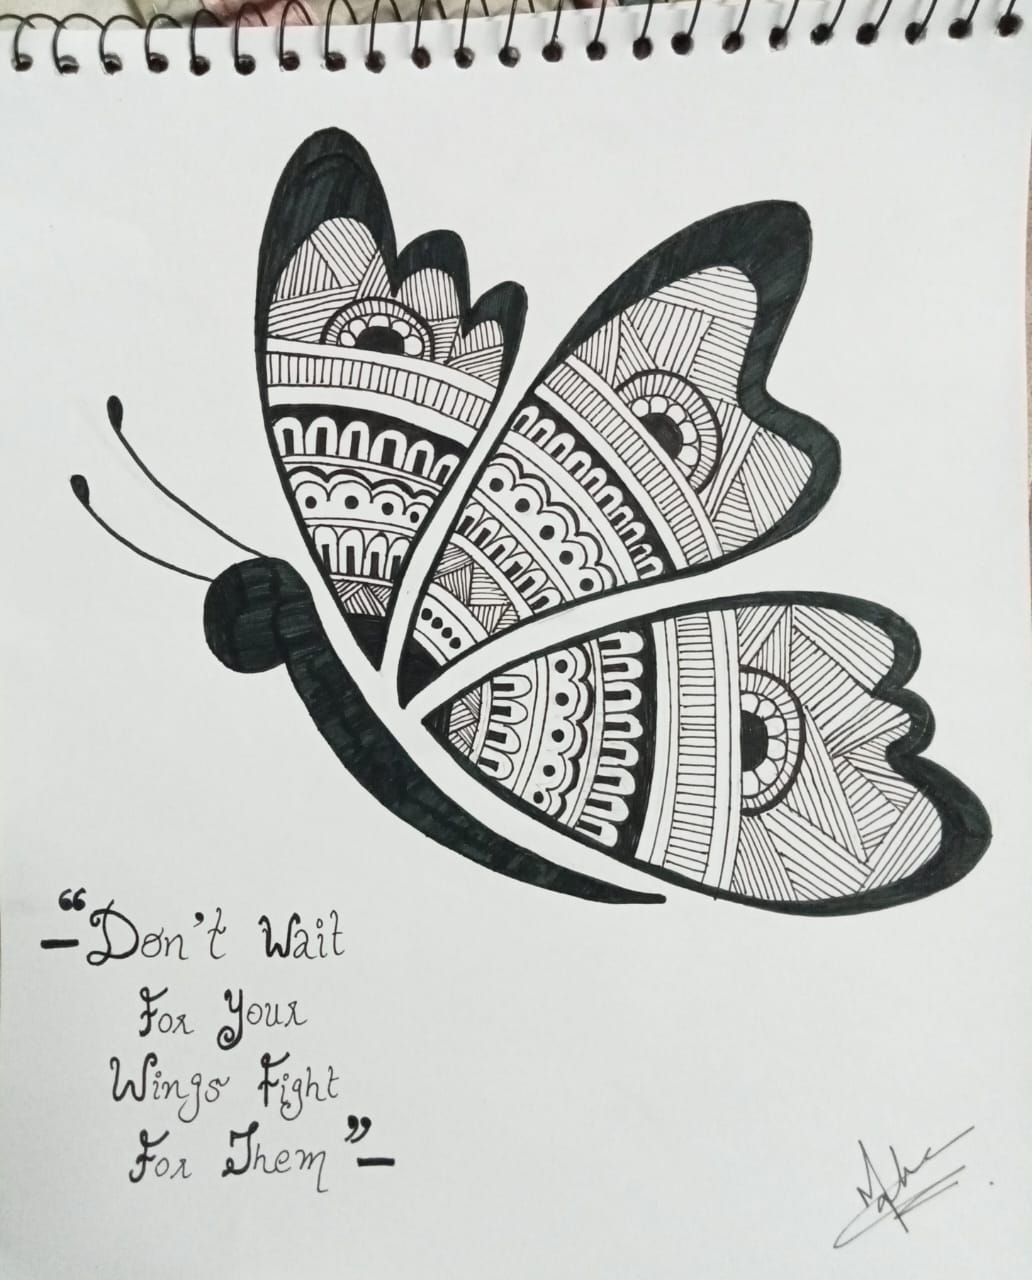 -"Don't Wait
For Your
Wings Fight
For Them"-